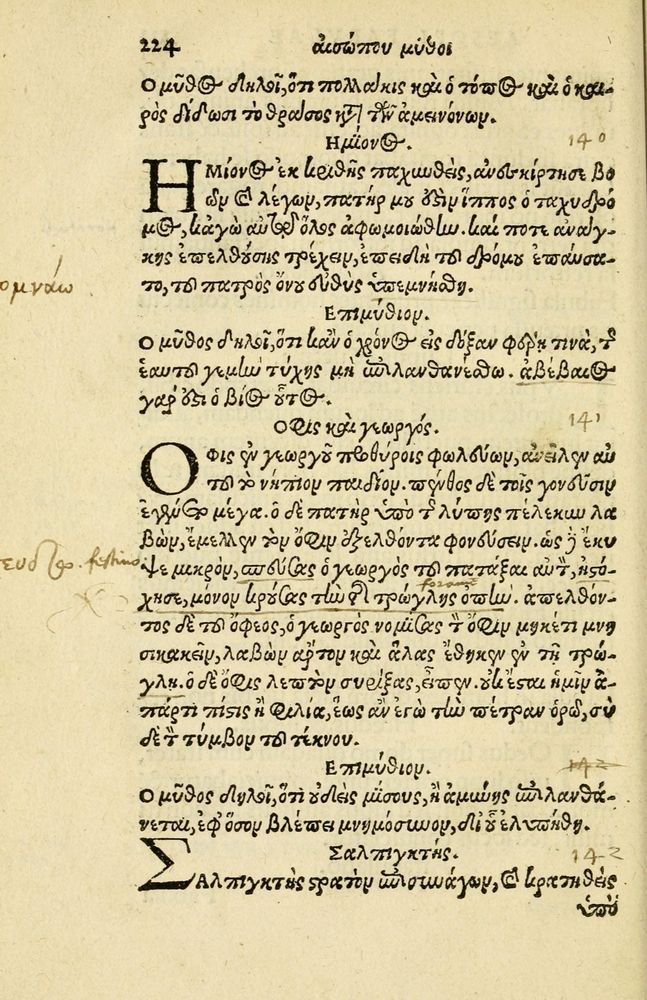 224 αἰσώπου μῦθοι
Ο μῦθος δηλοῖ, ὅτι πολλάκις καὶ ὁ τόπος καὶ ὁ και-
ρὸς δίδωσι τὸ θράσος κατὰ τῶν ἀμεινόνων.
Ημίονος. 140
ΗΜίονος ἐκ κριθῆς παχυνθεὶς, ἀνεσκίρτησε βο
ῶν καὶ λέγων, πατήρ μου ἐστὶν ἵππος ὁ ταχυδρό
μος, κἀγὼ αὐτῷ ὅλος ἀφωμοιώθην. καί ποτε ἀνάγ-
κης ἐπελθούσης τρέχειν, ἐπειδὴ τοῦ δρόμου ἐπαύσα-
το, τοῦ πατρὸς ὄνου εὐθὺς ὑπεμνήσθη.
ομνάω
Επιμύθιον.
Ο μῦθος δηλοῖ, ὅτι κἂν ὁ χρόνος εἰς δόξαν φέρῃ τινὰ, τῆς
ἑαυτοῦ γεμὼ τύχης μὴ ἐπιλανθανέσθω. ἀβέβαιος
γάρ ἐστι ὁ βίος οὗτος.
Οφις καὶ γεωργός. 141
ΟΦις ἐν γεωργοῦ προθύροις φωλεύων, ἀνεῖλεν αὐ
τοῦ τὸ νήπιον παιδίον. πένθος δὲ τοῖς γονεῦσιν
ἐγένετο μέγα. ὁ δὲ πατὴρ ὑπὸ τῆς λύπης πέλεκυν λα
βὼν, ἔμελλεν τὸν ὄφιν ἐξελθόντα φονεύσειν. ὡς δὲ ἔκυ
festino
ψε μικρὸν, σπεύσας ὁ γεωργὸς τοῦ πατάξαι αὐτὸν, ἠστό-
χησε, μόνον κρούσας τὴν τῆς τρώγλης ὀπήν. ἀπελθόν-
τος δὲ τοῦ ὄφεος, ὁ γεωργὸς νομίσας τὸν ὄφιν μηκέτι μνη
σικακεῖν, λαβὼν ἄρτον καὶ ἅλας ἔθηκεν ἐν τῇ τρώ-
γλῃ. ὁ δὲ ὄφις λεπτὸν συρίξας, εἶπεν. οὐκ ἔσται ἡμῖν ἀ-
πάρτι πίστις ἢ φιλία, ἕως ἂν ἐγὼ τὴν πέτραν ὁρῶ, σὺ
δὲ τὸν τύμβον τοῦ τέκνου.
Επιμύθιον.
Ο μῦθος δηλοῖ, ὅτι οὐδεὶς μίσους, ἢ ἀμύνης ἐπιλανθά-
νεται, ἐφ' ὅσον βλέπει μνημόσυνον, δι' οὗ ἐλυπήθη.
Σαλπιγκτής. 142
ΣΑλπιγκτὴς στρατὸν ἐπισυνάγων, καὶ κρατηθεὶς
ὑπὸ